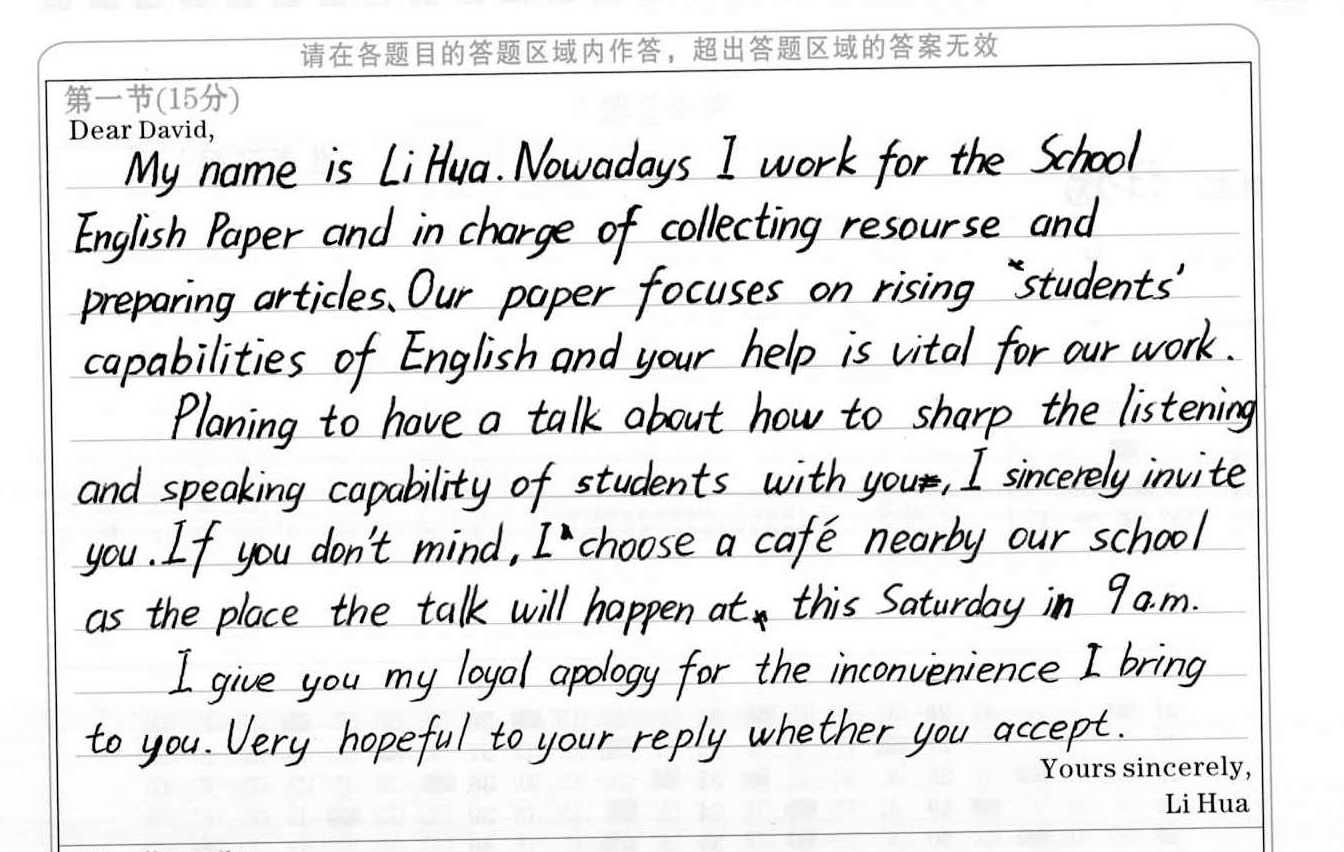 请在各题目的答题区域内作答，超出答题区域的答案无效
第一节(15分)
Dear David,
My name is Li Hua. Nowadays I work for the School
English Paper and in charge of collecting resourse and
preparing articles. Our paper focuses on rising students'
capabilities of English and your help is vital for our work.
Planing to have a talk about how to sharp the listening
and speaking capability of students with you, I sincerely invite
you. If you don't mind, I choose a café nearby our school
as the place the talk will happen at, this Saturday in 9 a.m.
I give you my loyal apology for the inconvenience I bring
to you. Very hopeful to your reply whether you accept.
Yours sincerely,
Li Hua